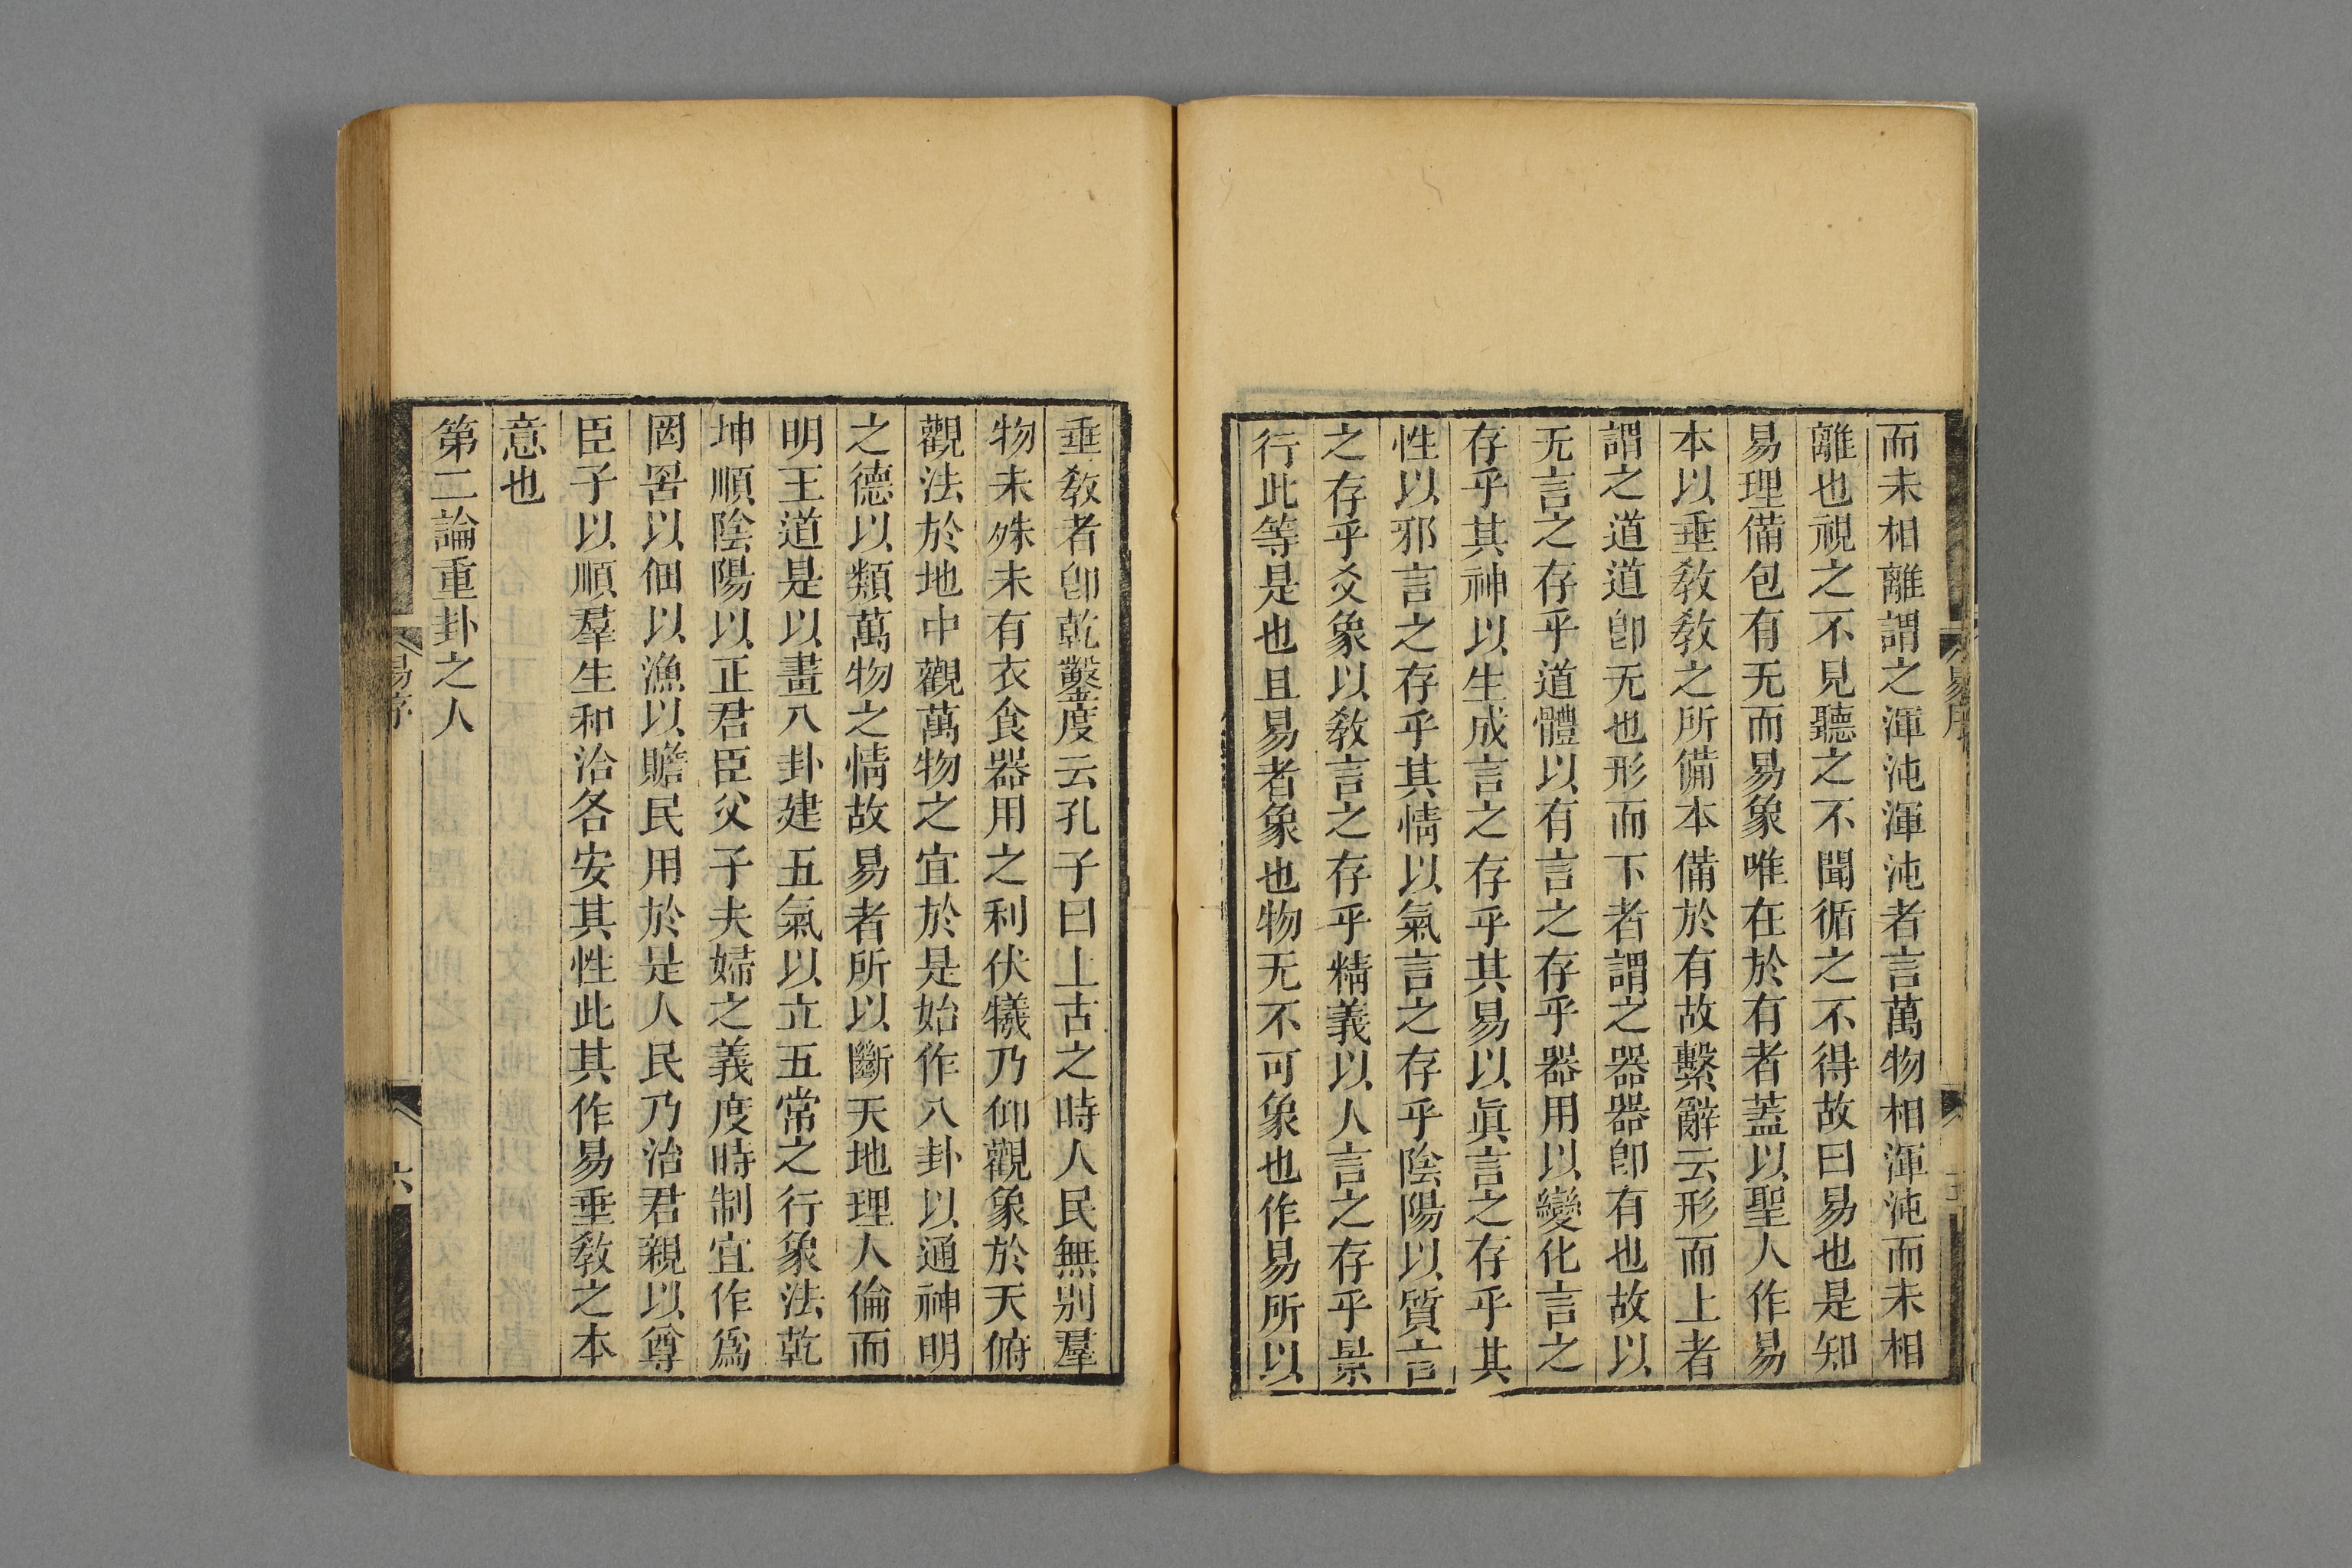 而未相離謂之渾沌渾沌者言萬物相渾沌而未相
離也視之不見聽之不聞循之不得故曰易也是知
易理備包有无而易象唯在於有者蓋以聖人作易
本以垂敎敎之所備本備於有故繫辭云形而上者
謂之道道卽无也形而下者謂之器器卽有也故以
无言之存乎道體以有言之存乎器用以變化言之
存乎其神以生成言之存乎其易以眞言之存乎其
性以邪言之存乎其情以氣言之存乎陰陽以質言
之存乎爻象以敎言之存乎精義以人言之存乎景
行此等是也且易者象也物无不可象也作易所以
垂敎者卽乾鑿度云孔子曰上古之時人民無別羣
物未殊未有衣食器用之利伏犧乃仰觀象於天俯
觀法於地中觀萬物之宜於是始作八卦以通神明
之德以類萬物之情故易者所以斷天地理人倫而
明王道是以畫八卦建五氣以立五常之行象法乾
坤順陰陽以正君臣父子夫婦之義度時制宜作爲
罔罟以佃以漁以贍民用於是人民乃治君親以尊
臣子以順羣生和洽各安其性此其作易垂敎之本
意也
第二論重卦之人
易序
六